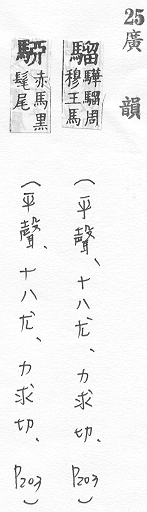 25 廣韻
騮 驊騮周穆王馬 （平聲、十八尤、力求切、P203）
赤馬黑髦尾 （平聲、十八尤、力求切、P203）